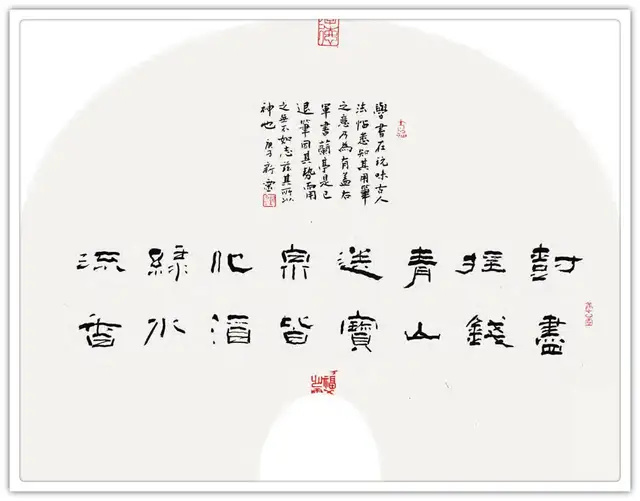 學書在玩味古人
法帖悉知其用筆
之意乃為有益右
軍書蘭亭是已
退筆因其勢而用
之無不如志茲其所以
神也 庚子
尌盡
挂錢
青山
送寶
泉皆
化酒
綠水
流香